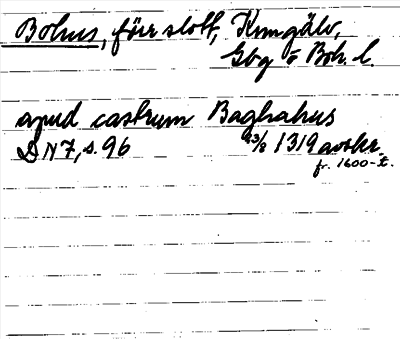 Bohus, förr slott, Kungälv,
Gbg o Boh. l.
apud castrum Baghahus
DN 7, s. 96 23/8 1319 avskr.
fr. 1600-t.